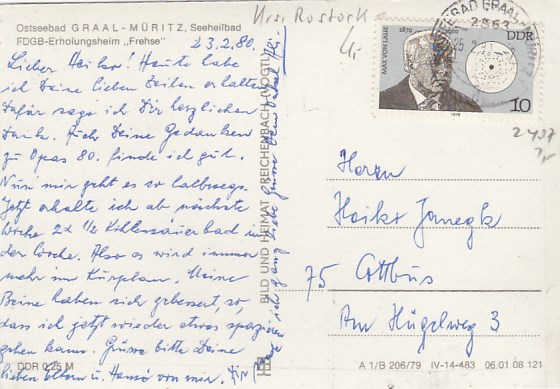 Ostseebad GRAAL-MÜRITZ, Seeheilbad
FDGB-Erholungsheim „Frehse“
Krs. Rostock
23.2.80.
Lieber Heiko! Heute habe
ich Deine lieben Zeilen erhalten
dafür sage ich Dir herzlichen
Dank. Auch Deine Gedanken
zu Opas 80. finde ich gut.
Nun mir geht es so halbwegs.
Jetzt erhalte ich ab nächste
Woche 2x 1/2 Kohlensäurebad in
der Woche. Also es wird immer
mehr im Kurplan. Meine
Beine haben sich gebessert, so,
dass ich jetzt wieder etwas spazieren
gehen kann. Grüsse bitte Deine
lieben Eltern u. Hansi von mir. Für
ich ganz liebe Grüsse Dein Onkel
DDR 0,25 M
BILD UND HEIMAT REICHENBACH (VOGTL)
MAX VON LAUE
1879 1960
DDR
10
1979
SEEBAD GRAAL-MÜRITZ
2553
Herrn
Heiko Janegk
75 Cottbus
Am Hügelweg 3
A 1/B 206/79 IV-14-483 06 01 08 121